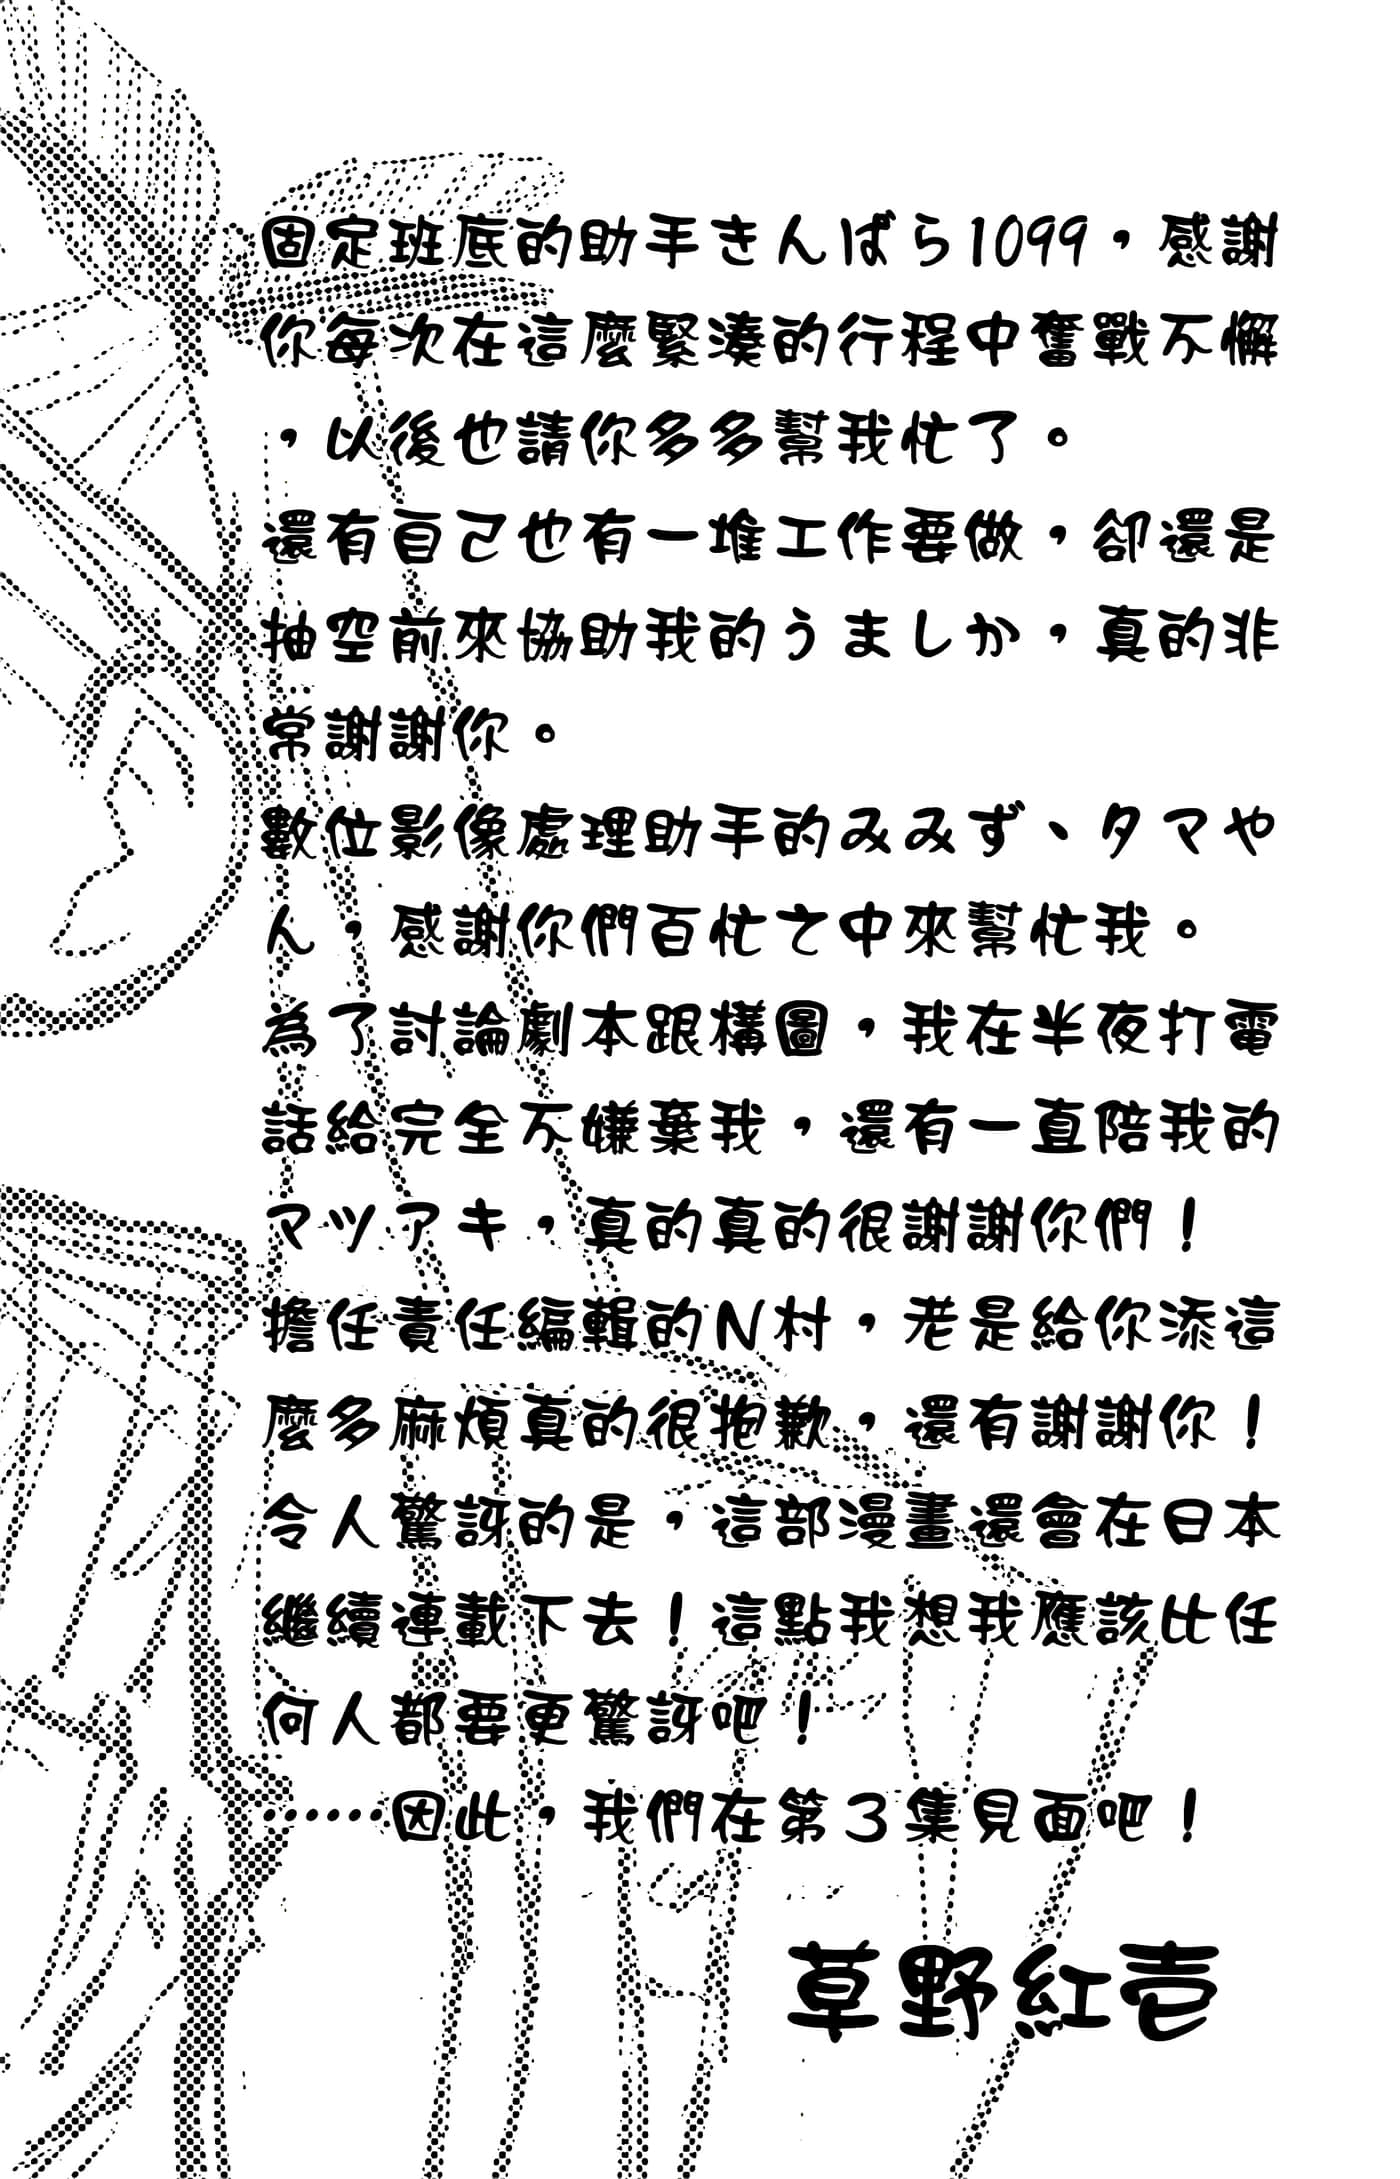 固定班底的助手きんばら1099，感謝
你每次在這麼緊湊的行程中奮戰不懈
，以後也請你多多幫我忙了。
還有自己也有一堆工作要做，卻還是
抽空前來協助我的うましか，真的非
常謝謝你。
數位影像處理助手的みみず、タマや
ん，感謝你們百忙之中來幫忙我。
為了討論劇本跟構圖，我在半夜打電
話給完全不嫌棄我，還有一直陪我的
マツアキ，真的真的很謝謝你們！
擔任責任編輯的N村，老是給你添這
麼多麻煩真的很抱歉，還有謝謝你！
令人驚訝的是，這部漫畫還會在日本
繼續連載下去！這點我想我應該比任
何人都要更驚訝吧！
……因此，我們在第3集見面吧！
草野紅壱